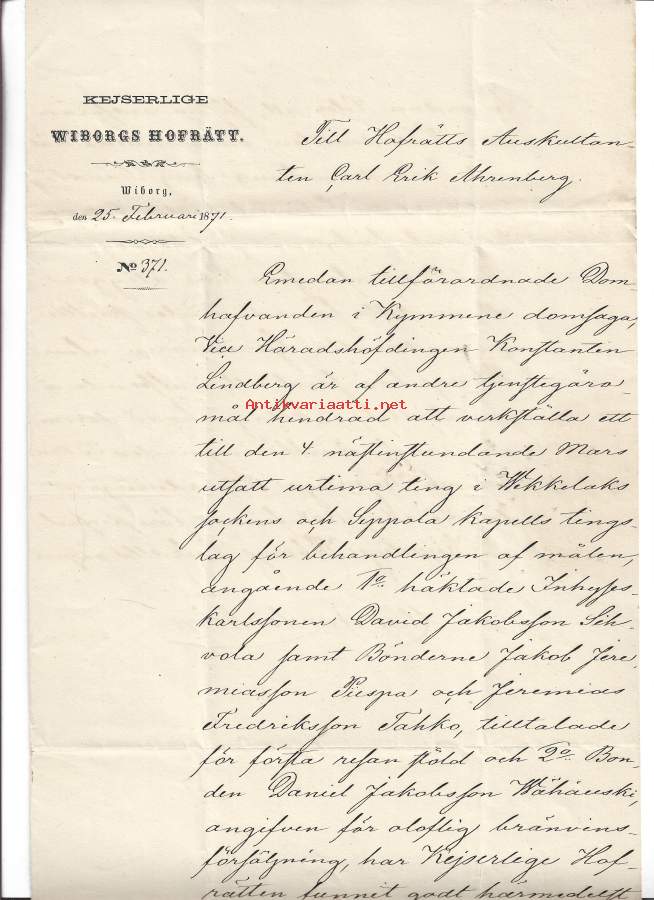 KEJSERLIGE
WIBORGS HOFRÄTT.
Wiborg,
den 25. Februari 1871.
No 371.
Till Hofrätts Auskultan-
ten Carl Erik Ahrenberg.
Emedan tillförordnade Dom-
hafvanden i Kymmene domsaga,
Vice Häradshöfdingen Konstantin
Lindberg är af andre tjenstegöro-
Antikvariaatti.net
mål hindrad att verkställa ett
till den 4. nästinstundande Mars
utsatt urtima ting i Wekkelaks
sockens och Sippola kapells tings-
lag för behandlingen af målen,
angående 1o. häktade Inhyses-
karlssonen David Jakobsson Sih-
vola samt Bönderne Jakob Jere-
miasson Piispa och Jeremias
Fredriksson Tahko, tilltalade
för första resan stöld och 2o. Bon-
den Daniel Jakobsson
angifven för oloflig bränvins-
försäljning, har Kejserlige Hof-
rätten funnit godt härmedelst